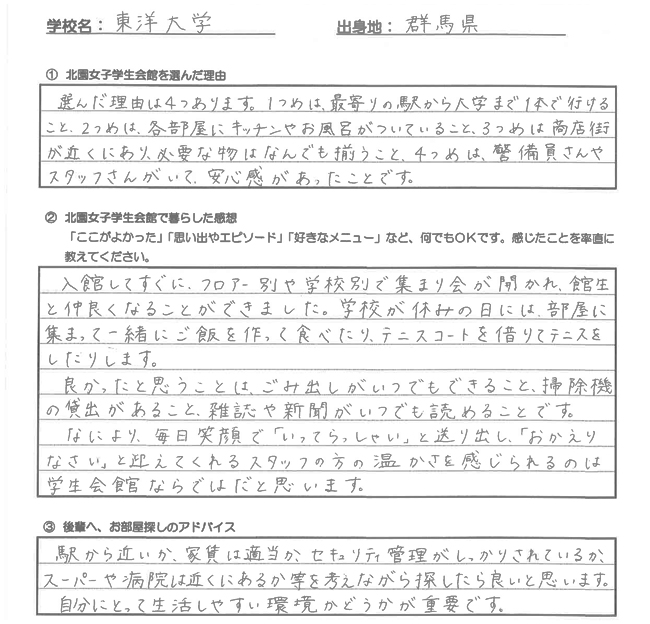 学校名： 東洋大学
出身地： 群馬県
① 北園女子学生会館を選んだ理由
選んだ理由は4つあります。1つめは、最寄りの駅から大学まで1本で行ける
こと、2つめは、各部屋にキッチンやお風呂がついていること、3つめは商店街
が近くにあり、必要な物はなんでも揃うこと、4つめは、警備員さんや
スタッフさんがいて、安心感があったことです。
② 北園女子学生会館で暮らした感想
「ここがよかった」「思い出やエピソード」「好きなメニュー」など、何でもOKです。感じたことを率直に
教えてください。
入館してすぐに、フロアー別や学校別で集まり会が開かれ、館生
と仲良くなることができました。学校が休みの日には、部屋に
集まって一緒にご飯を作って食べたり、テニスコートを借りてテニスを
したりします。
良かったと思うことは、ごみ出しがいつでもできること、掃除機
の貸出があること、雑誌や新聞がいつでも読めることです。
なにより、毎日笑顔で「いってらっしゃい」と送り出し、「おかえり
なさい」と迎えてくれるスタッフの方の温かさを感じられるのは
学生会館ならではだと思います。
③ 後輩へ、お部屋探しのアドバイス
駅から近いか、家賃は適当か、セキュリティ管理がしっかりされているか、
スーパーや病院は近くにあるか等を考えながら探したら良いと思います。
自分にとって生活しやすい環境かどうかが重要です。